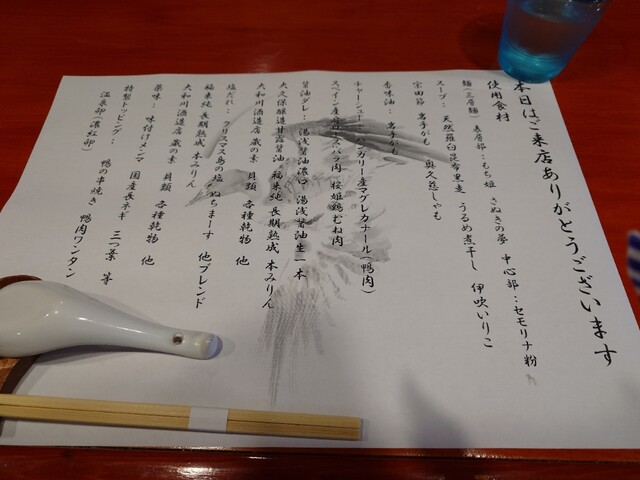 本日はご来店ありがとうございます
使用食材
麺(三層麺) 表層部:もち姫 さぬきの夢 中心部:セモリナ粉
スープ: 天然羅臼昆布黒走 うるめ煮干し 伊吹いりこ
宗田節 岩手がも 奥久慈しゃも
香味油: 岩手がも
チャーシュー: ハンガリー産マグレカナール(鴨肉)
スペイン産 バラ肉 桜姫鶏むね肉
醤油ダレ: 湯浅醤油濃口 湯浅醤油生一本
大久保醸造甘露醤油 福来純 長期熟成 本みりん
大和川酒造店 蔵の素 貝類 各種乾物 他
塩だれ: クリスマス島の塩 ぬちまーす 他ブレンド
福来純 長期熟成 本みりん
大和川酒造店 蔵の素 貝類 各種乾物 他
薬味: 味付けメンマ 国産長ネギ 三つ葉 等
特製トッピング: 鴨の串焼き 鴨肉ワンタン
温泉卵(濃紅卵)